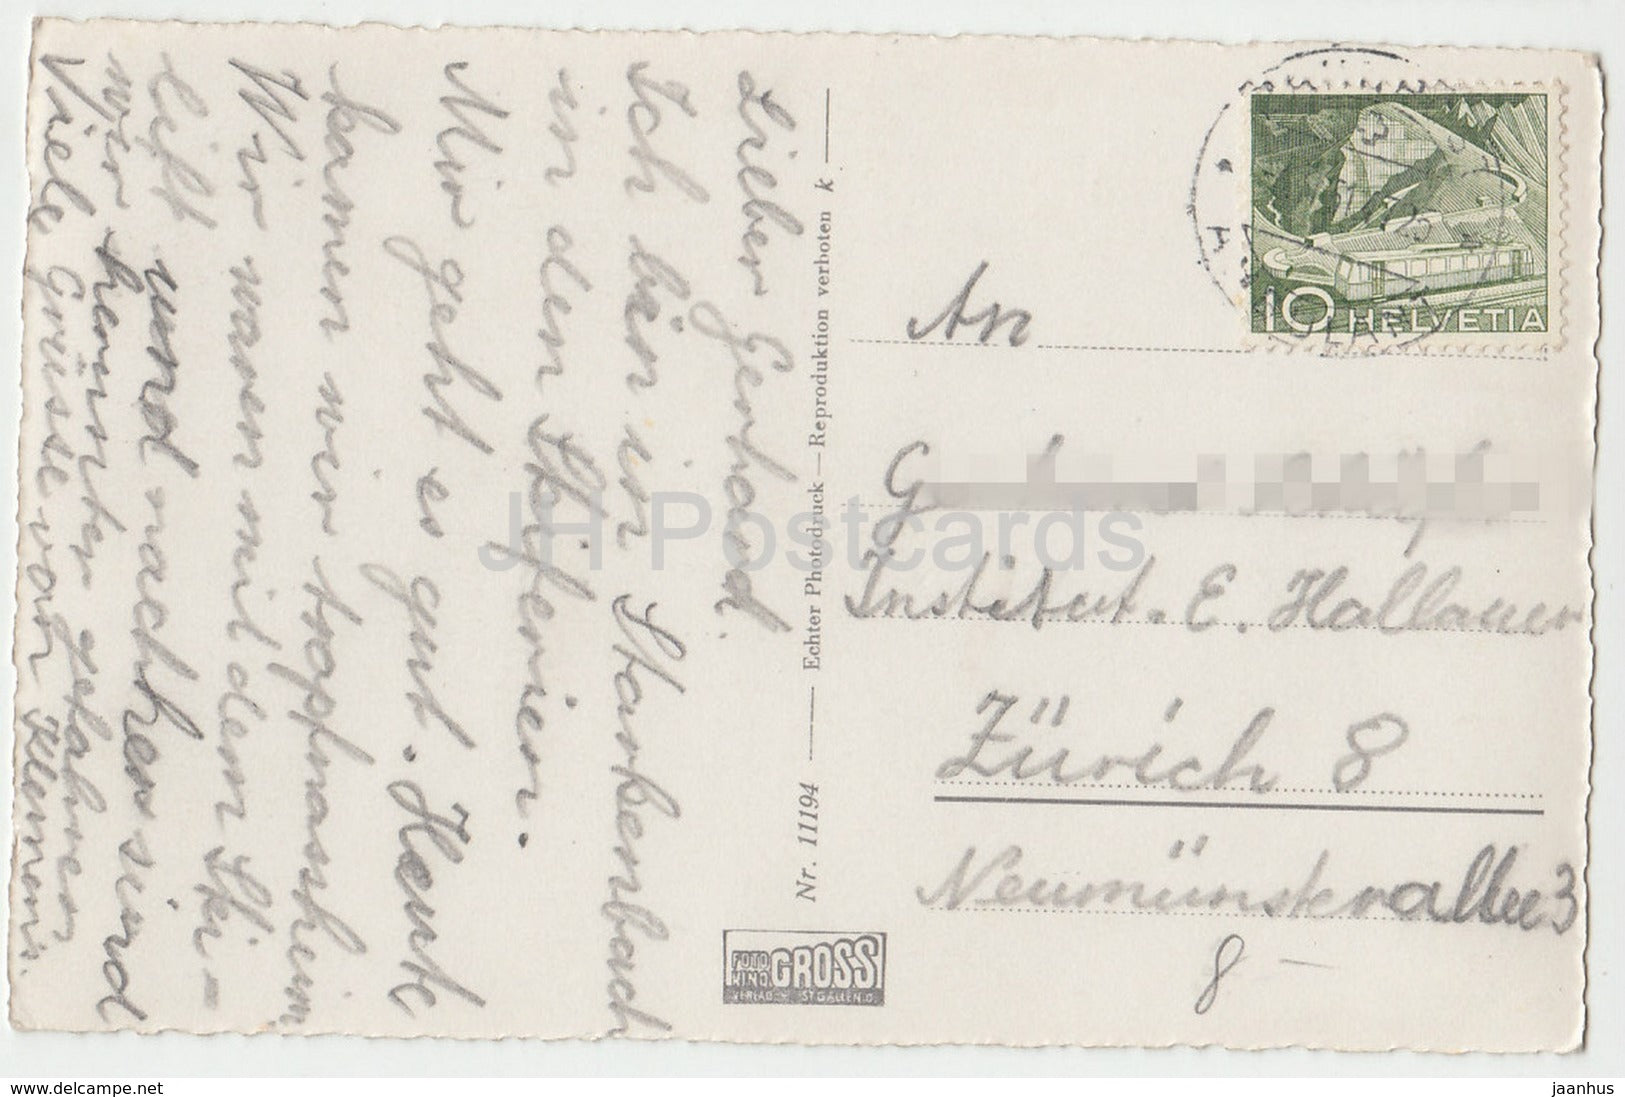 Lieber Gerhard.
Ich bin in Starkenbach
in den Skiferien.
Mir geht es gut. Heute
kamen wir
Wir waren mit dem Ski-
lift und nachher sind
wir hinunter gefahren
Viele Grüsse von Klemens.
Nr. 11194 — Echter Photodruck — Reproduktion verboten k
FOTO KINO GROSS
VERLAG ST. GALLEN O.
10 HELVETIA
An
G
Institut. E. Hallauer
Zürich 8
Neumünsterallee 3
8 —
JH Postcards
www.delcampe.net
jaanhus